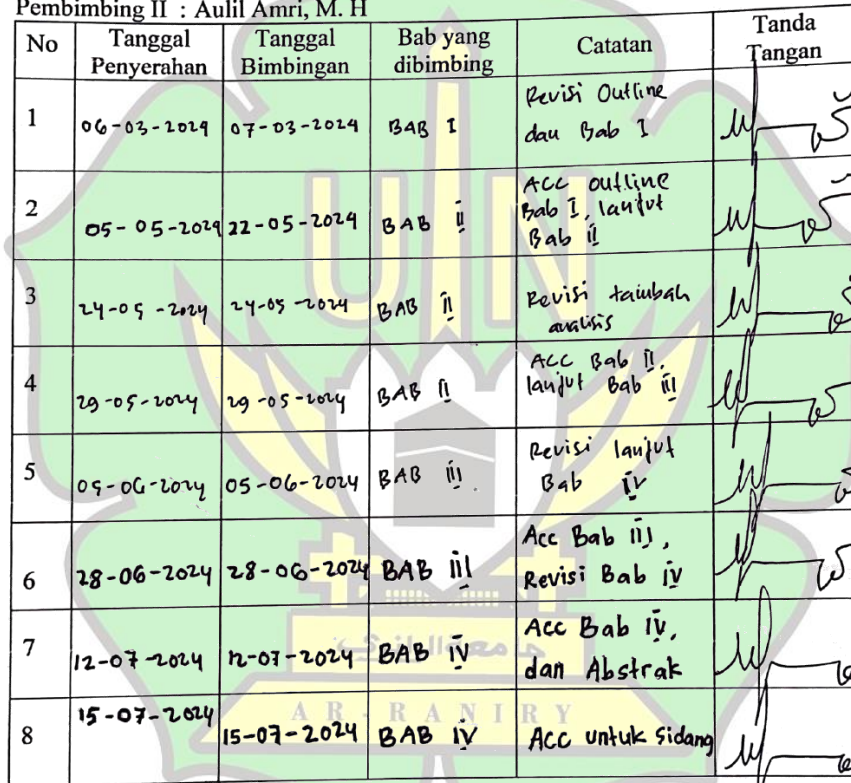 Pembimbing II : Aulil Amri, M. H
No Tanggal Penyerahan Tanggal Bimbingan Bab yang dibimbing Catatan Tanda Tangan
1 06-03-2024 07-03-2024 BAB I Revisi Outline
dan Bab I
2 05-05-2024 22-05-2024 BAB II ACC outline
Bab I, lanjut
Bab II
3 24-05-2024 24-05-2024 BAB II Revisi tambah
analisis
4 29-05-2024 29-05-2024 BAB II ACC Bab II,
lanjut Bab III
5 05-06-2024 05-06-2024 BAB III Revisi lanjut
Bab IV
6 28-06-2024 28-06-2024 BAB III Acc Bab III,
Revisi Bab IV
7 12-07-2024 12-07-2024 BAB IV Acc Bab IV,
dan Abstrak
8 15-07-2024 15-07-2024 BAB IV Acc untuk sidang
UIN
جامعة الرانري
AR-RANIRY